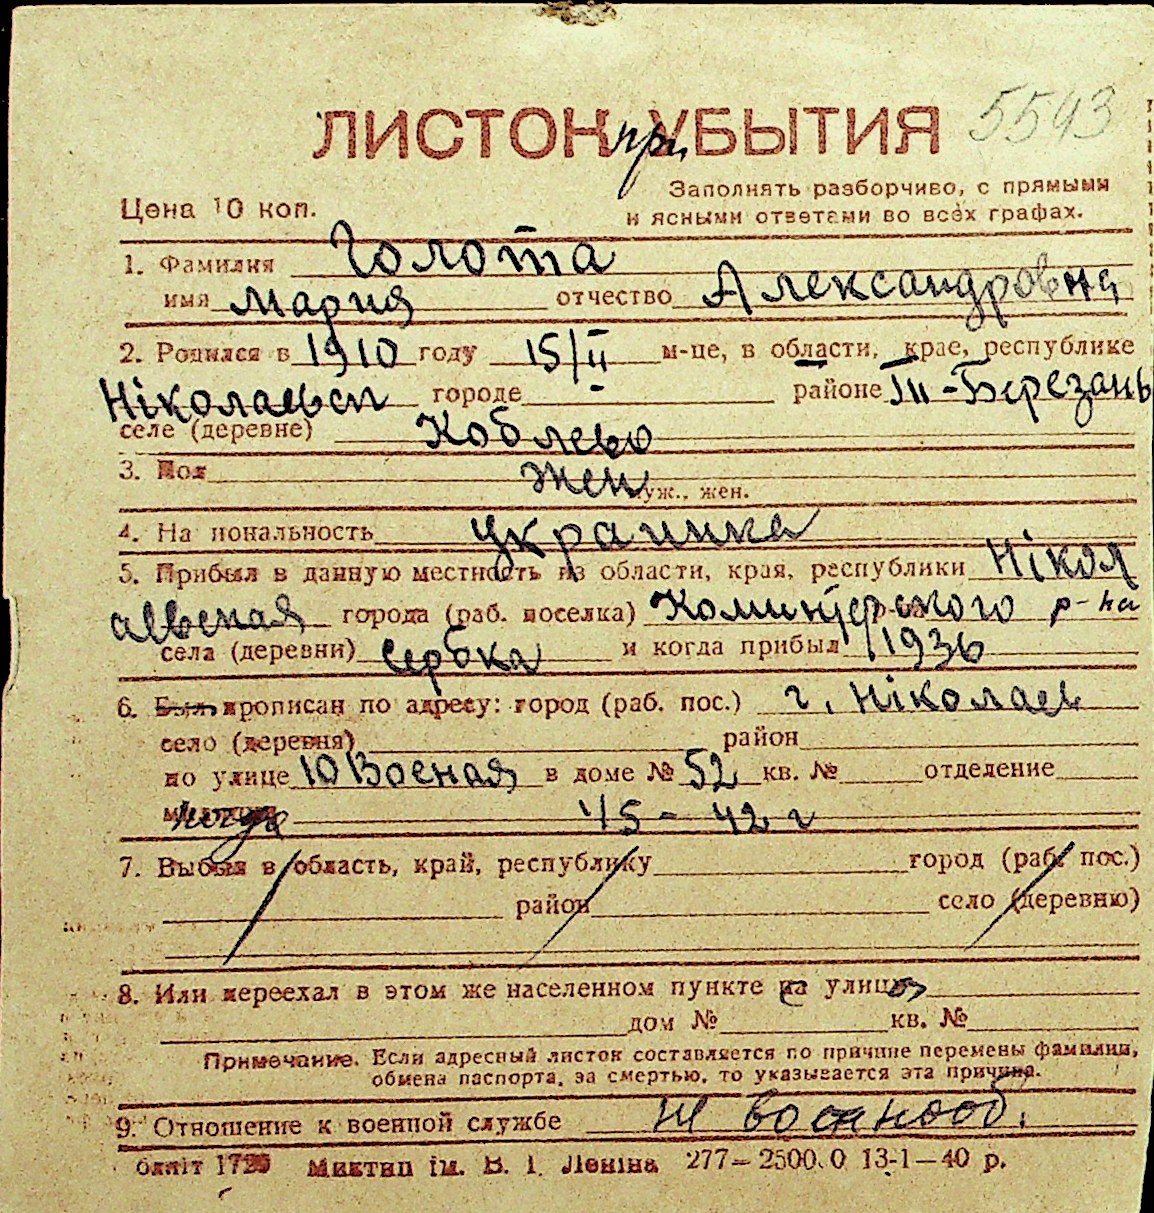 ЛИСТОК при УБЫТИЯ 5543
Заполнять разборчиво, с прямыми
Цена 10 коп. и ясными ответами во всех графах.
1. Фамилия Голота
имя Мария отчество Александровна
2. Родился в 1910 году 15/II м-це, в области, крае, республике
Ніколаевск городе районе Ти-Березань
селе (деревне) Коблево
3. Пол жен
муж., жен.
4. Национальность украинка
5. Прибыл в данную местность из области, края, республики Нікол
аевская города (раб. поселка) Комінтерского р-на
села (деревни) Сербка и когда прибыл 1936
6. Был прописан по адресу: город (раб. пос.) г. Ніколаев
село (деревня) район
по улице 10 Военая в доме № 52 кв. № отделение
милиции когда 4/5 - 42 г
7. Выбыл в область, край, республику город (раб. пос.)
район село (деревню)
8. Или переехал в этом же населенном пункте на улицу
дом № кв. №
Примечание. Если адресный листок составляется по причине перемены фамилии,
обмена паспорта, за смертью, то указывается эта причина.
9. Отношение к военной службе не военнооб.
Обліт 1729 Миктип ім. В. І. Леніна 277—2500.0 13-1—40 р.